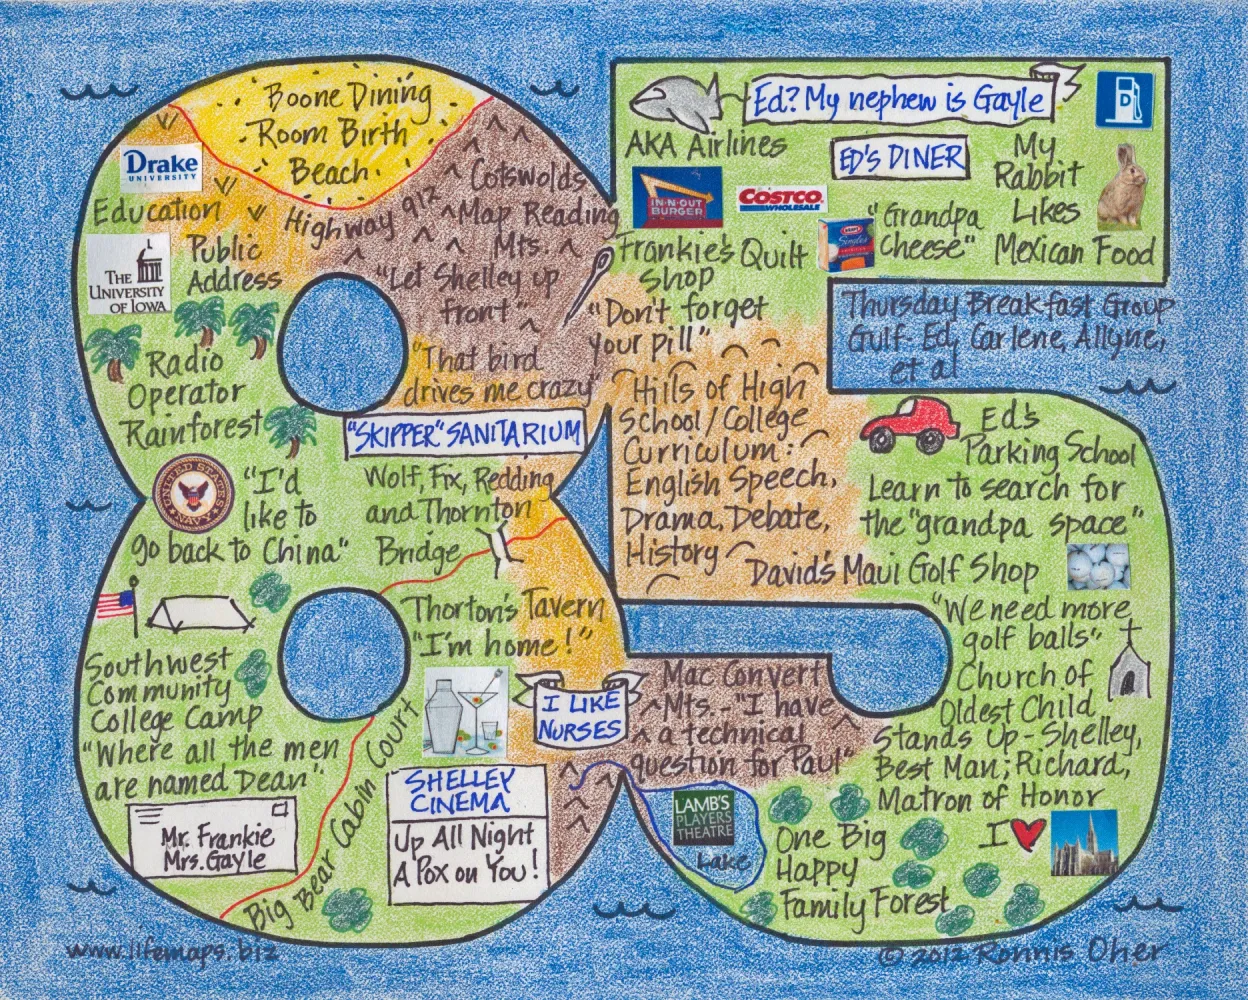 Boone Dining
Room Birth
Beach
Drake
UNIVERSITY
Education
Highway 912
Cotswolds
Map Reading
Mts.
THE
UNIVERSITY
OF IOWA
Public
Address
"Let Shelley up
front"
Radio
Operator
Rainforest
"That bird
drives me crazy"
"SKIPPER" SANITARIUM
UNITED STATES
NAVY
"I'd
like to
go back to China"
Wolf, Fix, Redding
and Thornton
Bridge
Thorton's Tavern
"I'm home!"
Southwest
Community
College Camp
"Where all the men
are named Dean"
I LIKE
NURSES
Big Bear Cabin Court
Mr. Frankie
Mrs. Gayle
SHELLEY
CINEMA
Up All Night
A Pox on You!
Ed? My nephew is Gayle
D
AKA Airlines
ED'S DINER
My
Rabbit
Likes
Mexican Food
IN-N-OUT
BURGER
COSTCO
WHOLESALE
Kraft
Singles
"Grandpa
Cheese"
Frankie's Quilt
Shop
"Don't forget
your pill"
Thursday Breakfast Group
Gulf - Ed, Carlene, Allyne,
et al
Hills of High
School/College
Curriculum:
English Speech,
Drama, Debate,
History
Ed's
Parking School
Learn to search for
the "grandpa space"
David's Maui Golf Shop
"We need more
golf balls"
Church of
Oldest Child
Stands Up - Shelley,
Best Man; Richard,
Matron of Honor
Mac Convert
Mts. - "I have
a technical
question for Paul"
LAMB'S
PLAYERS
THEATRE
Lake
One Big
Happy
Family Forest
I
www.lifemaps.biz
© 2012 Ronnis Oher